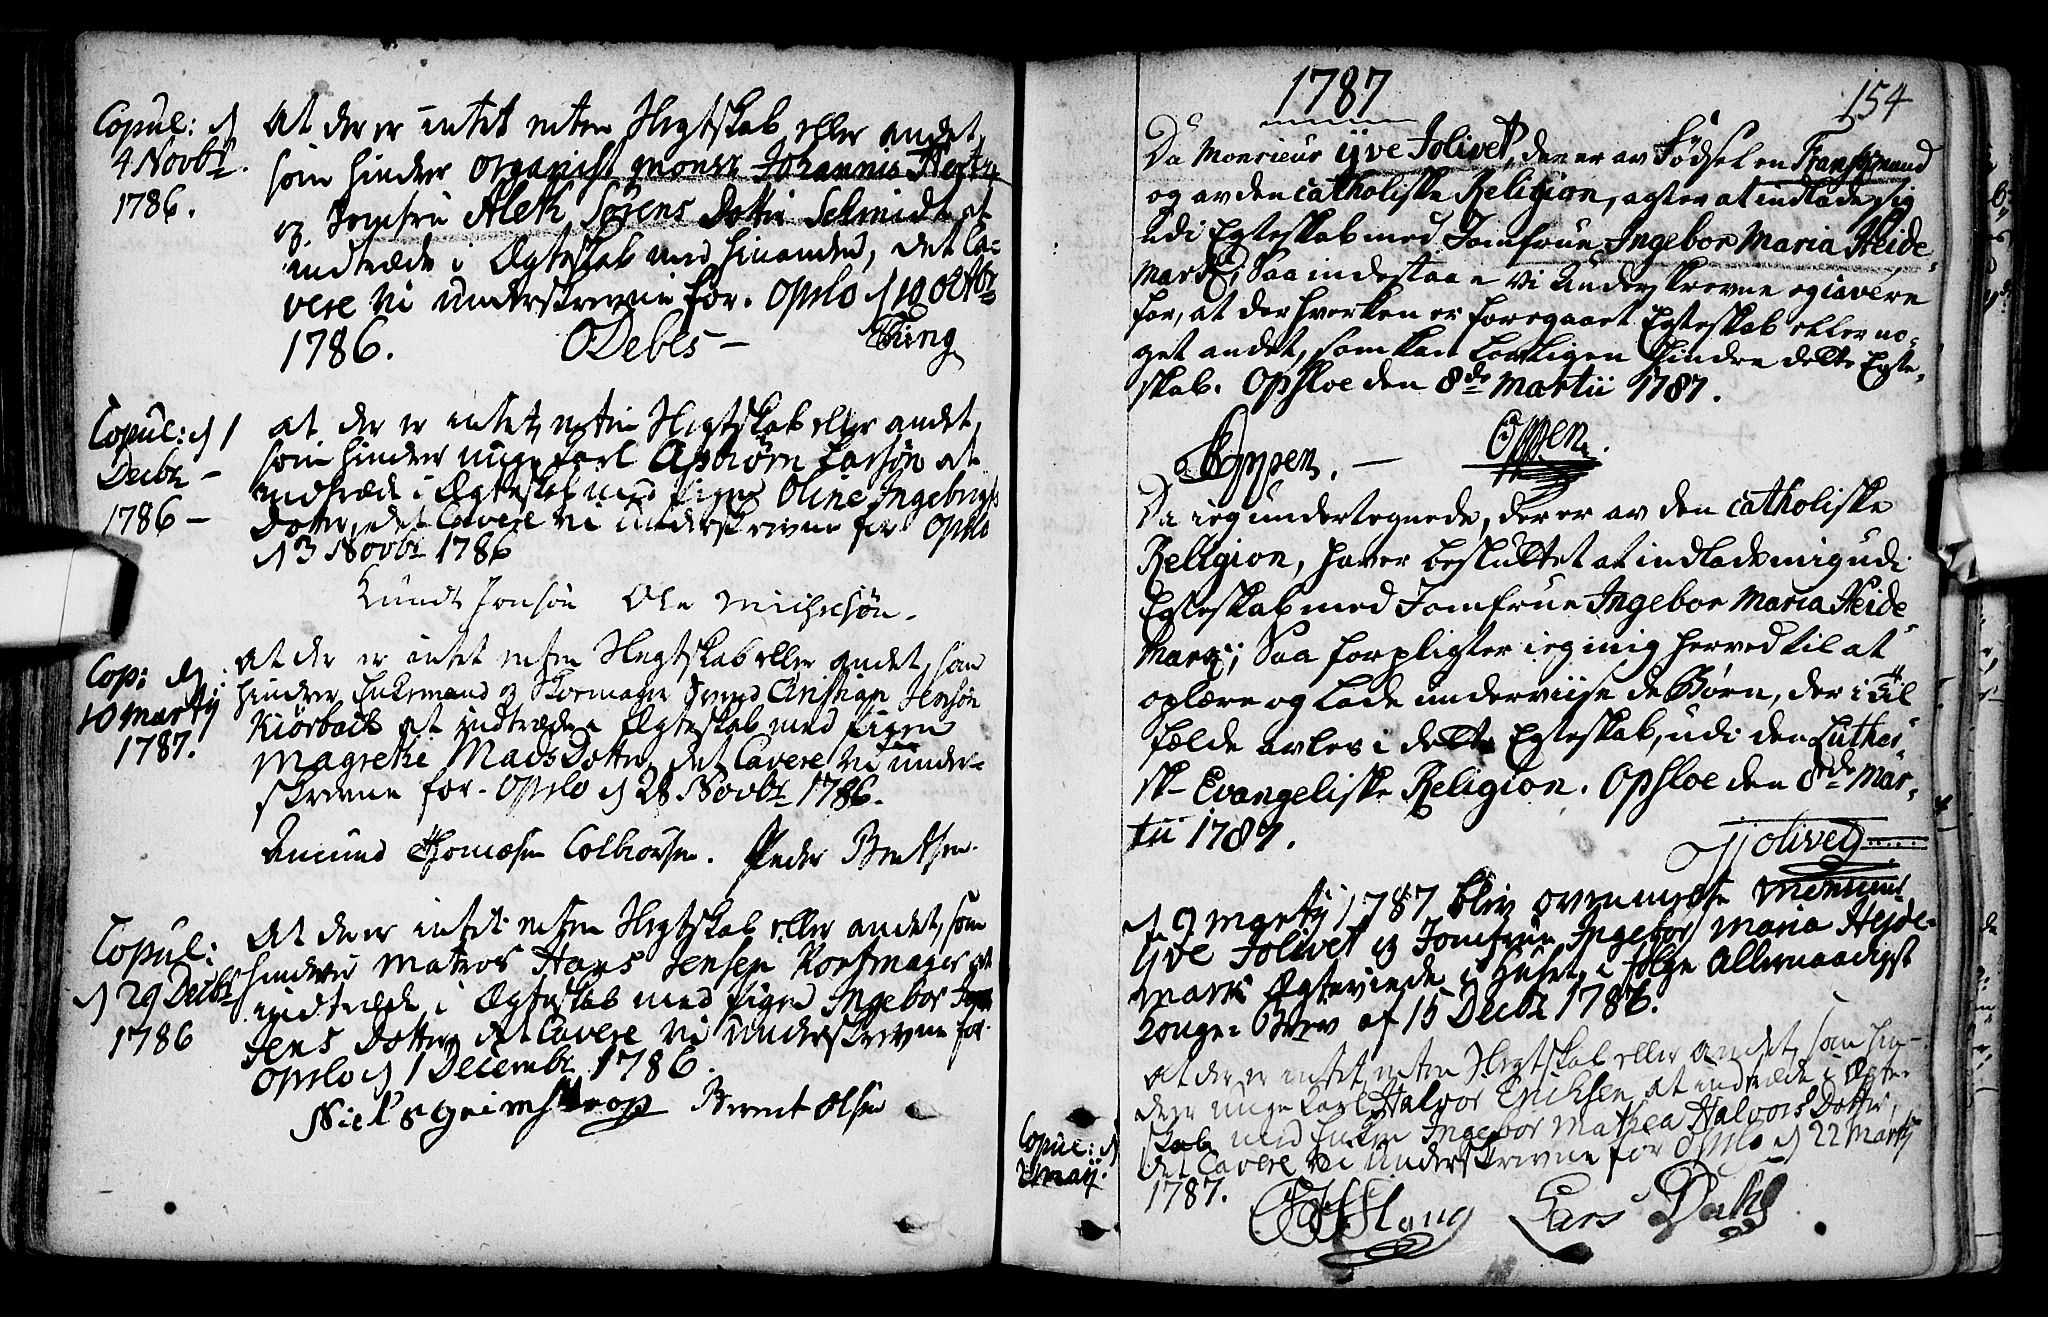 Copul: d
4 Novbr.
1786.
At der er intet enten Slegtskab eller andet,
som hindrer Organist Monsr Johannes
og Jomfru Aleth Sørens Dotter Schmidt at
indtræde i Ægteskab med hinanden, det Ca-
vere vi underskrevne for. Opslo d 10 Octbr
1786. ODebes - Thring
Copul: d 1
Decbr -
1786 -
at der er intet enten Slegtskab eller andet,
som hindrer unge Karl Asbiørn Larsøn at
indtræde i Ægteskab med Pigen Oline Ingebrigts
Dotter, det Cavere vi underskrevne for Opslo
d 3 Novbr 1786
Knudt Jonsøn Ole Michelsøn.
Cop: d
10 Marty
1787.
at der er intet enten Slegtskab eller andet, som
hindrer Enkemand og Skomager Svend Christian Jensøn
Kiørbach at indtræde i Ægteskab med Pigen
Magrethe Mads Dotter, det Cavere vi under-
skrevne for. Opslo d 28 Novbr 1786.
Amund Thomæsen Colbiørnsen. Peder Berntsen.
Copul:
d 29 Decbr
1786
At der er intet enten Slegtskab eller andet, som
hindrer Matros Hans Jensen Kortmager at
indtræde i Ægteskab med Pigen Ingebor
Jens Dotter, det Cavere vi underskrevne for.
Opslo d 1 Decembr 1786.
Niels Grimstrop Bernt Olsen
1787
154
Da Monsieur Yve Jolivet, der er av Fødsel en Franskmand
og av den catholiske Religion, agter at indlade sig
udi Egteskab med Jomfrue Ingebor Maria Heide-
mark; Saa indestaae Vi Underskrevne og cavere
for, at der hverken er foregaaet Egteskab eller no-
get andet, som kan lovligen hindre dette Egte-
skab. Opsloe den 8de Martii 1787.
Oppen. - Oppen.
Da ieg undertegnede, der er av den catholiske
Religion, haver besluttet at indlade mig udi
Egteskab med Jomfrue Ingebor Maria Heide
Mark; Saa forpligter ieg mig herved til at
oplære og lade underviise de Børn, der i Til
fælde avles i dette Egteskab, udi den Luther-
sk-Evangeliske Religion. Opsloe den 8de Mar-
tii 1787.
Yjolivet
d 9 Marty 1787 blev ovenmeldte Monsieur
Yve Jolivet og Jomfrue Ingebor Maria Hejde-
mark Ægteviede i Huset i følge Allernaadigst
Konge-Brev af 15 Decbr 1786.
Copul: d
2 Maij.
At der er intet enten Slegtskab eller andet, som hin-
drer unge Karl Halvor Ericksen at indtræde i Ægte-
skab med Enken Ingebor Mathea Halvors Dotter,
det Cavere vi underskrevne for Opslo d 22 Marty
1787.
Lars Dahl